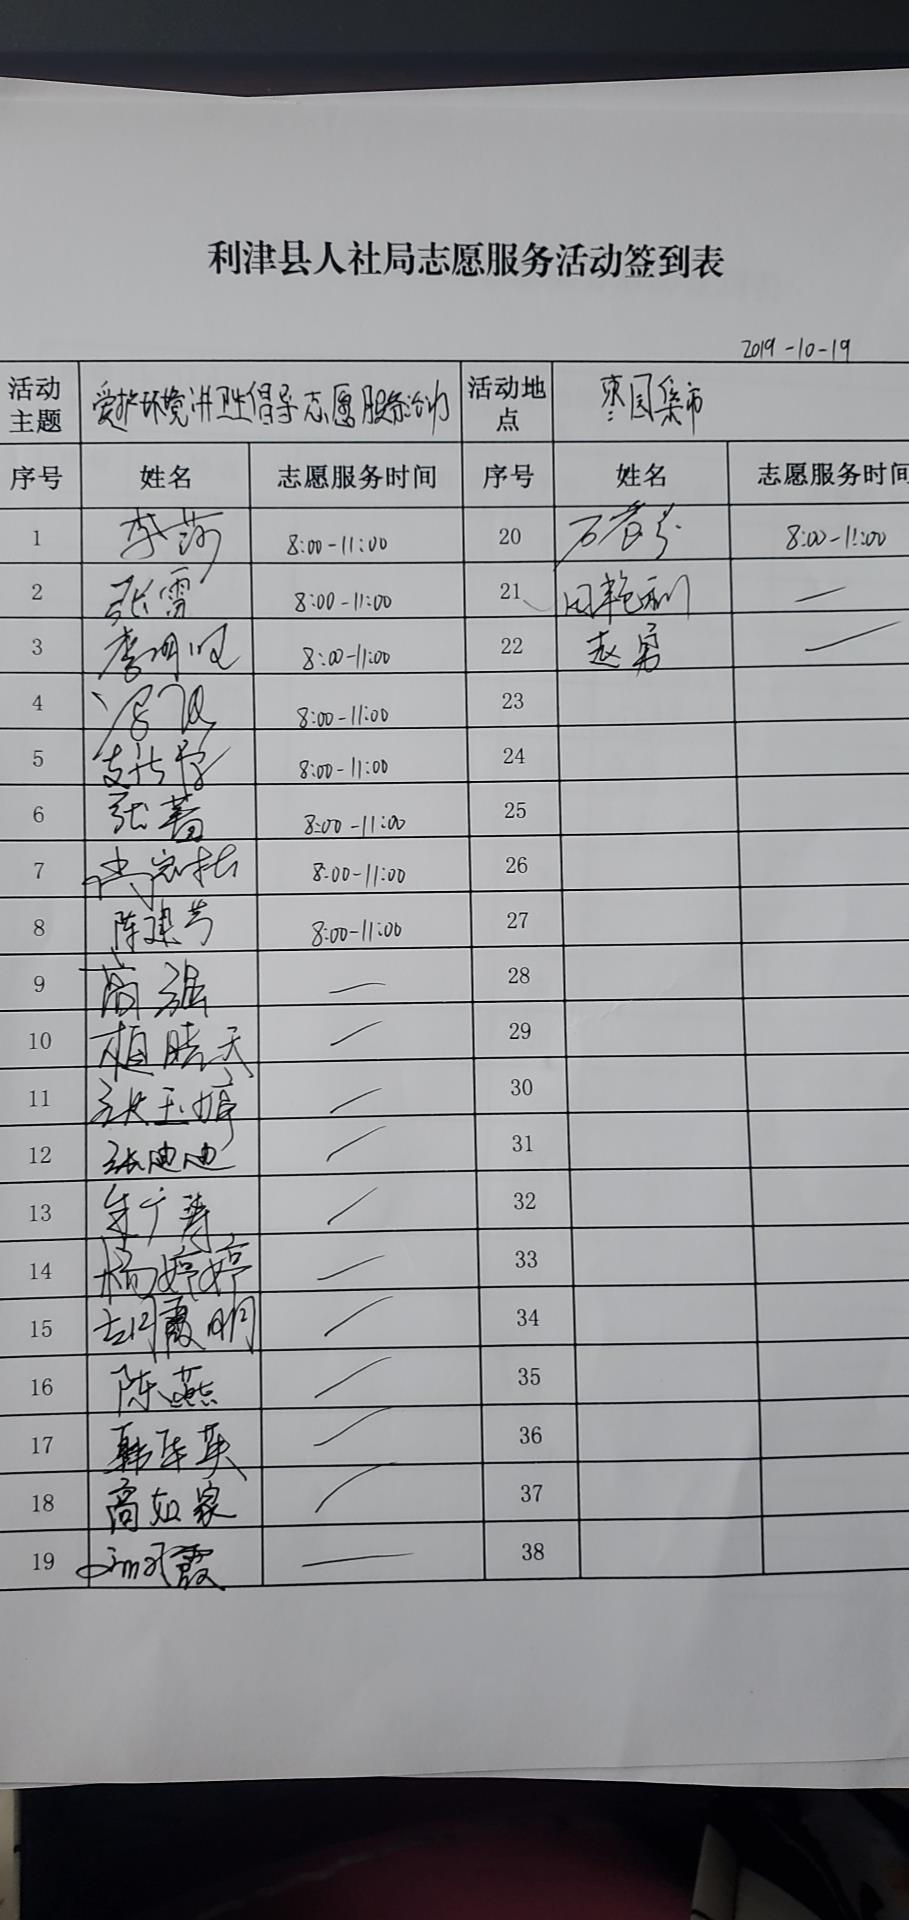 利津县人社局志愿服务活动签到表
2019-10-19
活动主题 爱护环境讲卫生倡导志愿服务活动 活动地点 枣园集市
序号 姓名 志愿服务时间 序号 姓名 志愿服务时间
1 李莎 8:00-11:00 20 8:00-11:00
2 张雷 8:00-11:00 21 田艳利 —
3 李明 8:00-11:00 22 赵勇 —
4 8:00-11:00 23
5 8:00-11:00 24
6 张蕾 8:00-11:00 25
7 8:00-11:00 26
8 陈建芳 8:00-11:00 27
9 高强 — 28
10 植晴天 — 29
11 张玉婷 — 30
12 张迪迪 — 31
13 朱广涛 — 32
14 杨婷婷 — 33
15 霞明 — 34
16 陈燕 — 35
17 韩英 — 36
18 高如家 — 37
19 霞 — 38